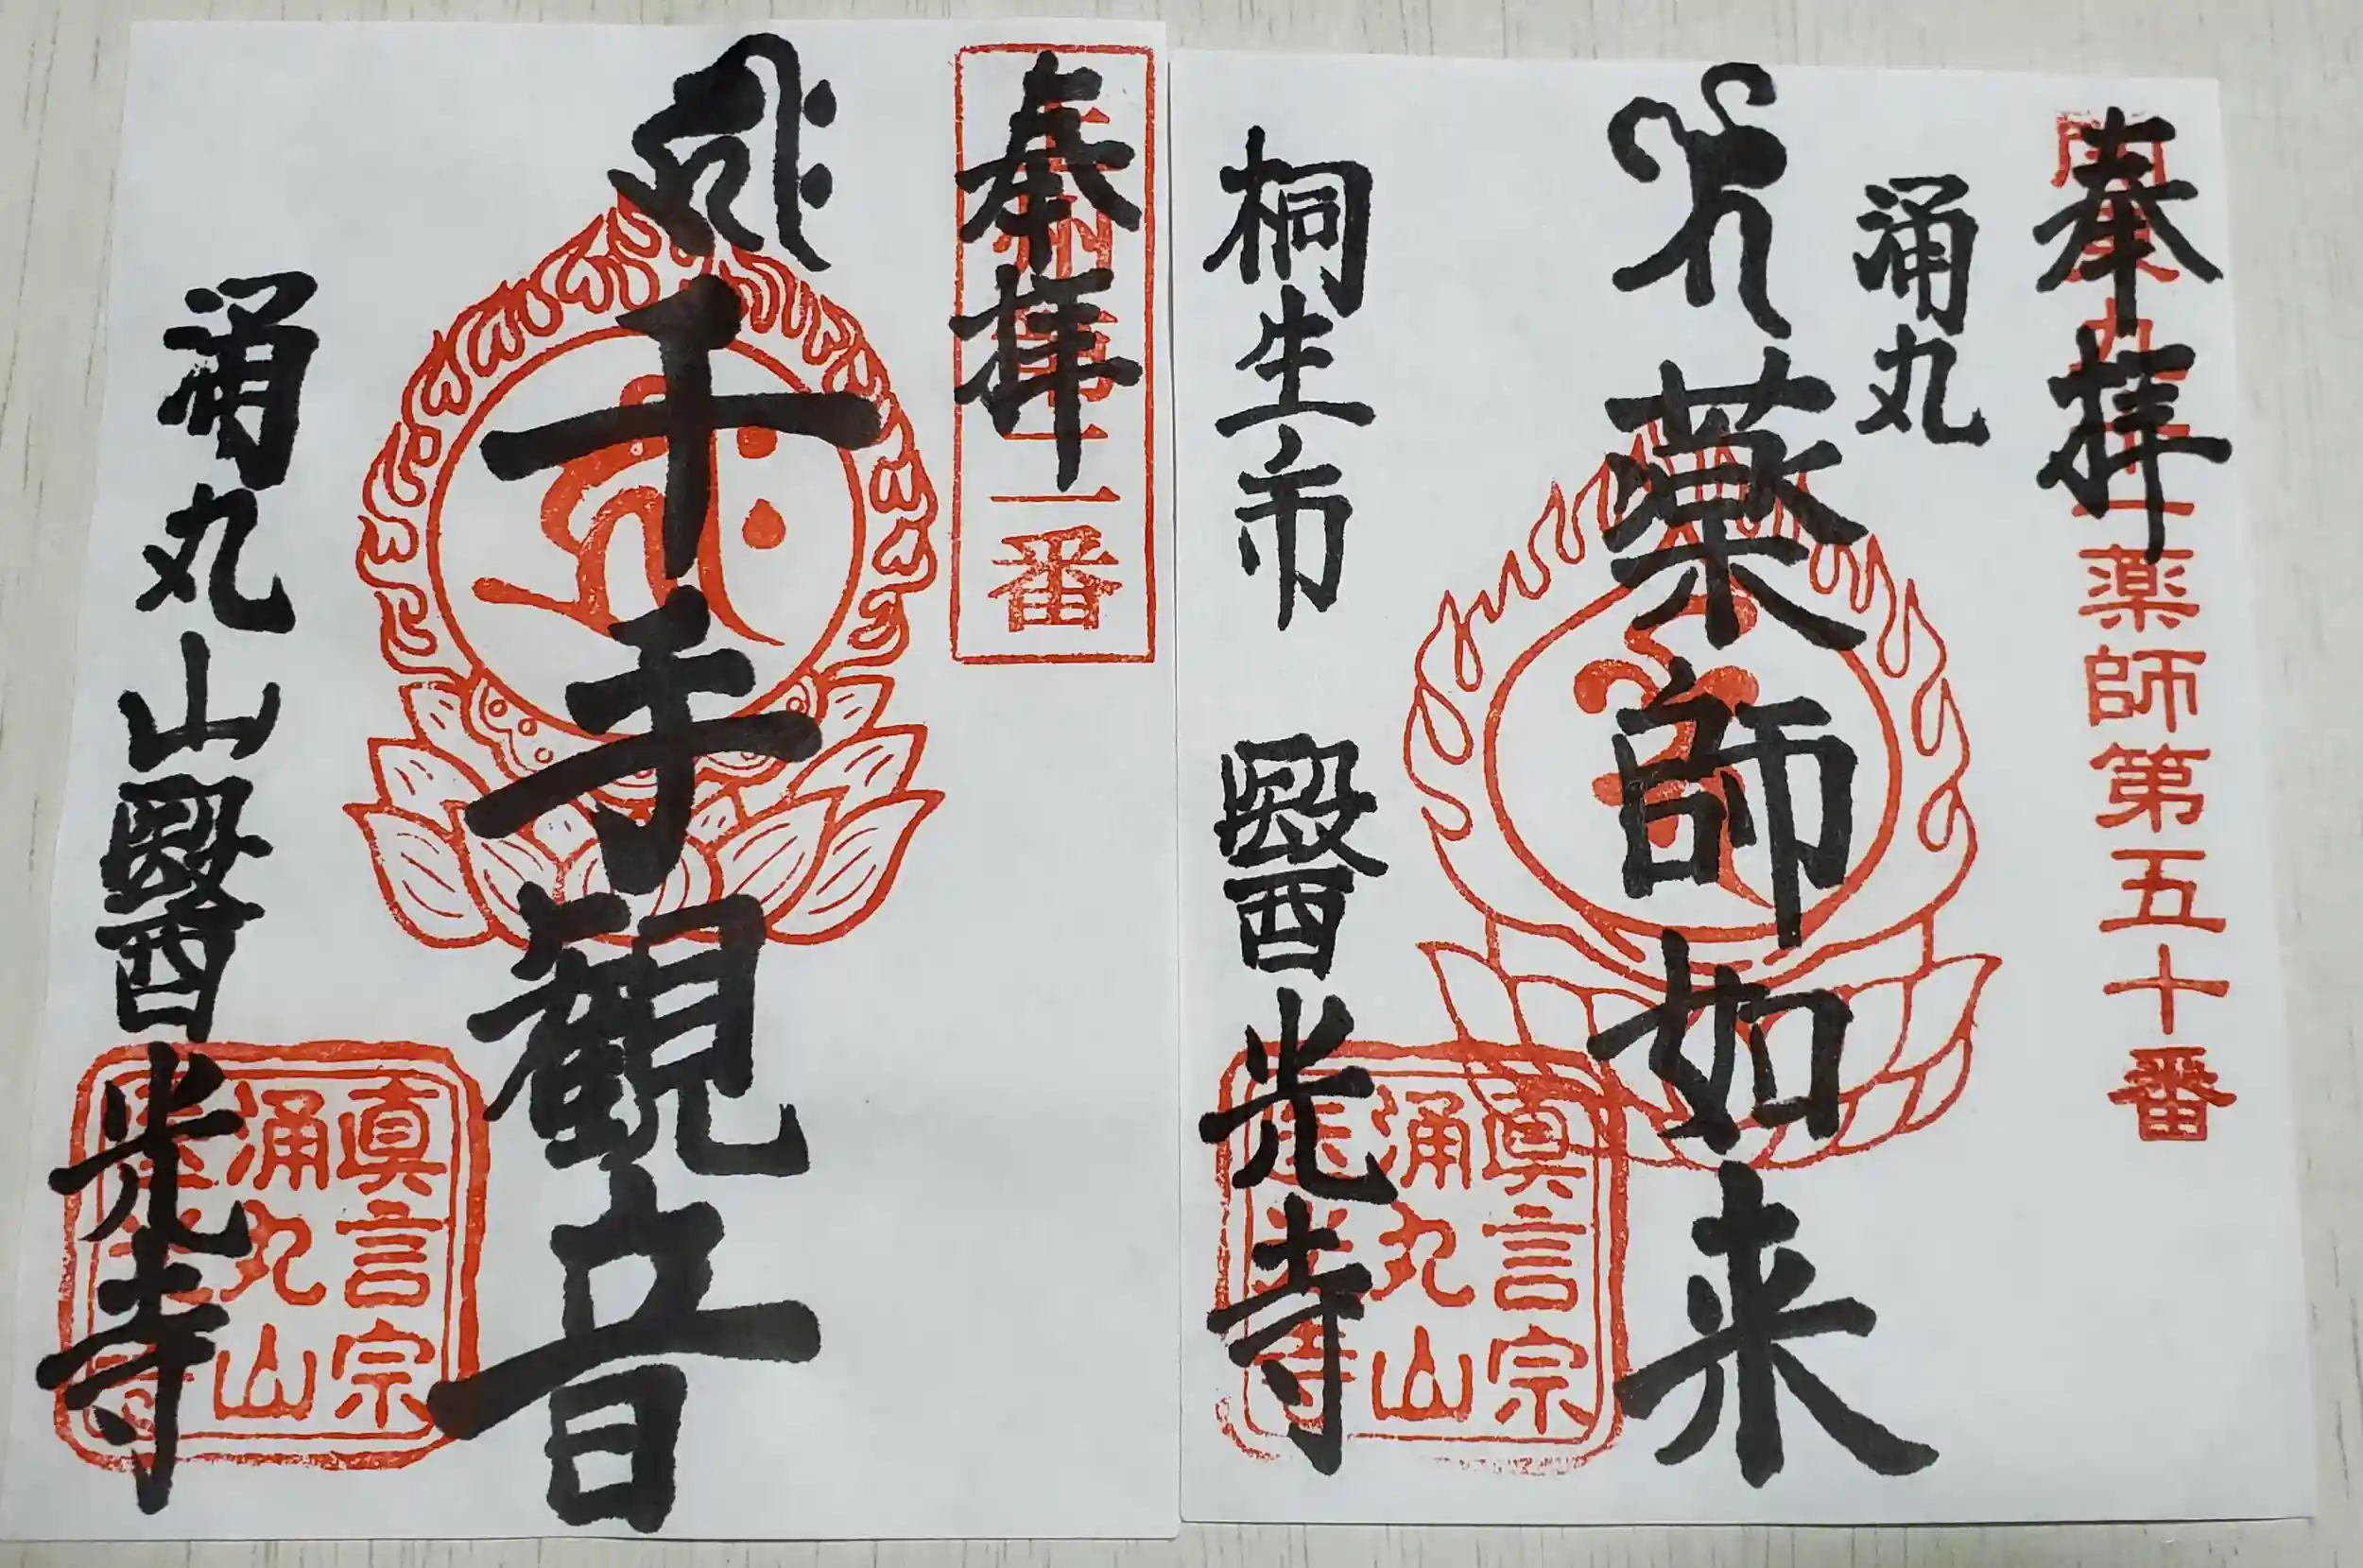 奉拝
番
千手観音
涌丸山醫光寺
真言宗
涌丸山
奉拝
薬師第五十番
涌丸
薬師如来
桐生市 醫光寺
眞言宗
涌丸山